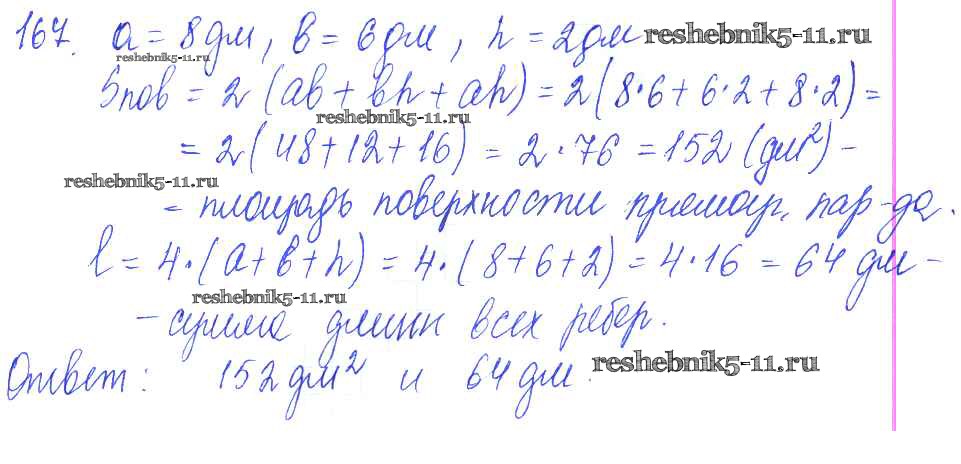 167. a = 8 дм, b = 6 дм, h = 2 дм reshebnik5-11.ru
reshebnik5-11.ru
Sпов = 2 (ab + bh + ah) = 2 (8·6 + 6·2 + 8·2) =
reshebnik5-11.ru
= 2 (48 + 12 + 16) = 2·76 = 152 (дм²) -
reshebnik5-11.ru
- площадь поверхности прямоуг. пар-да.
l = 4·(a + b + h) = 4·(8 + 6 + 2) = 4·16 = 64 дм -
reshebnik5-11.ru
- сумма длинн всех ребер.
Ответ: 152 дм² и 64 дм. reshebnik5-11.ru